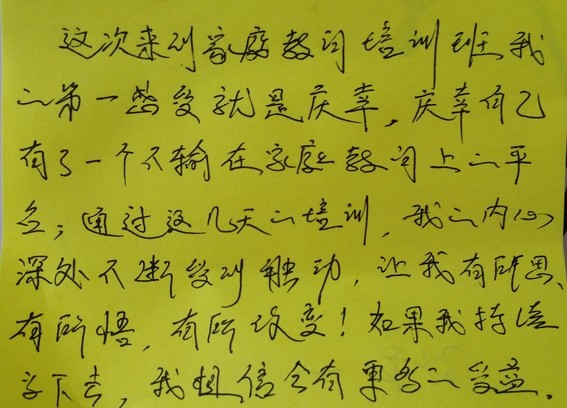 这次来到家庭教育培训班我
的第一感受就是庆幸，庆幸自己
有了一个不输在家庭教育上的平
台；通过这几天的培训，我的内心
深处不断受到触动，让我有所思、
有所悟，有所改变！如果我持续
学下去，我想信会有更多的受益。